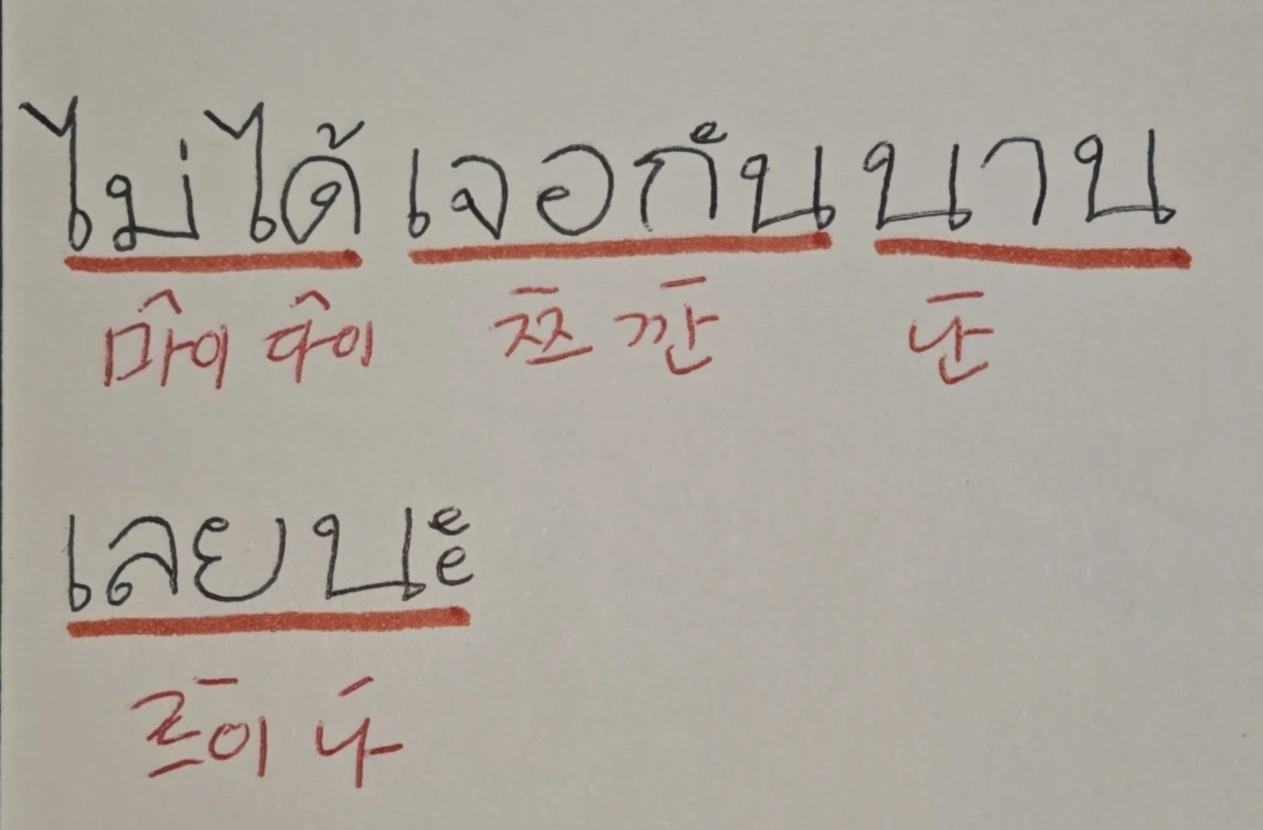 ไม่ได้ เจอกัน นาน
마이 다이 쯔 깐 난
เลย นะ
르이 나